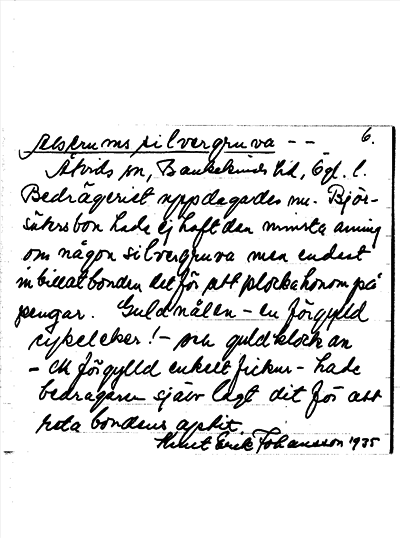 Alserums silvergruva - - 6.
Åtvids sn, Bankekinds hd, Ögl. l.
Bedrägeriet uppdagades nu. Björ-
säkersbon hade ej haft den minsta aning
om någon silvergruva men endast
inbillat bonden det för att plocka honom på
pengar. Guldnålen - en förgylld
cykeleker! - och guldklockan
- ett förgylld enkelt fickur - hade
bedragaren själv lagt dit för att
reta bondens aptit.
Knut Erik Johansson 1935